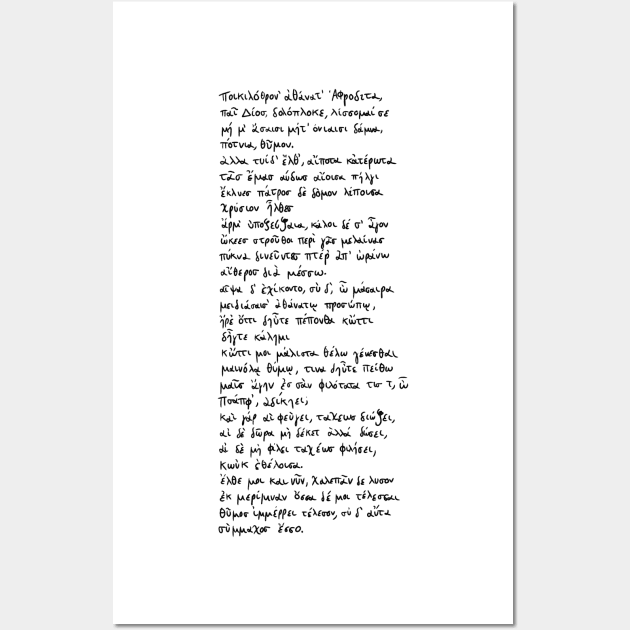 Ποικιλόθρον' ἀθάνατ' Ἀφροδιτα,
παῖ Δίοσ, δολόπλοκε, λίσσομαί σε
μή μ' ἄσαισι μήτ' ὀνιαισι δάμνα,
πότνια, θῦμον.
ἀλλα τυίδ' ἔλθ', αἴποτα κἀτέρωτα
τᾶσ ἔμασ αὔδωσ αἴοισα πήλγι
ἔκλυεσ πάτροσ δὲ δόμον λίποισα
χρύσιον ἦλθεσ
ἄρμ' ὐποζεύξαια, κάλοι δέ σ' ἆγον
ὤκεεσ στροῦθοι περὶ γᾶσ μελαίνασ
πύκνα δινεῦντεσ πτέρ' ἀπ' ὠράνω
αἴθεροσ διὰ μέσσω.
αἶψα δ' ἐχίκοντο, σὺ δ', ὦ μάσαιρα
μειδιάσαισ' ἀθάνατῳ προσώπῳ,
ἤρε ὄττι δηὖτε πέπονθα κὤττι
δἦγτε κάλημι
κὤττι μοι μάλιστα θέλω γένεσθαι
μαινόλᾳ θύμῳ, τινα δηὖτε πείθω
μαῖσ ἄγην ἐσ σὰν φιλότατα τισ τ, ὦ
Πσάπφ', ἀδικήει;
καὶ γάρ αἰ φεύγει, ταχεωσ διώξει,
αἰ δὲ δῶρα μὴ δέκετ ἀλλά δώσει,
αἰ δὲ μὴ φίλει ταχέωσ φιλήσει,
κωὐκ ἐθέλοισα.
ἔλθε μοι και νῦν, χαλεπᾶν δε λυσον
ἐκ μερίμναν ὄσσα δέ μοι τέλεσσαι
θῦμοσ ἰμμέρρει τέλεσον, σὺ δ' αὔτα
σύμμαχοσ ἔσσο.